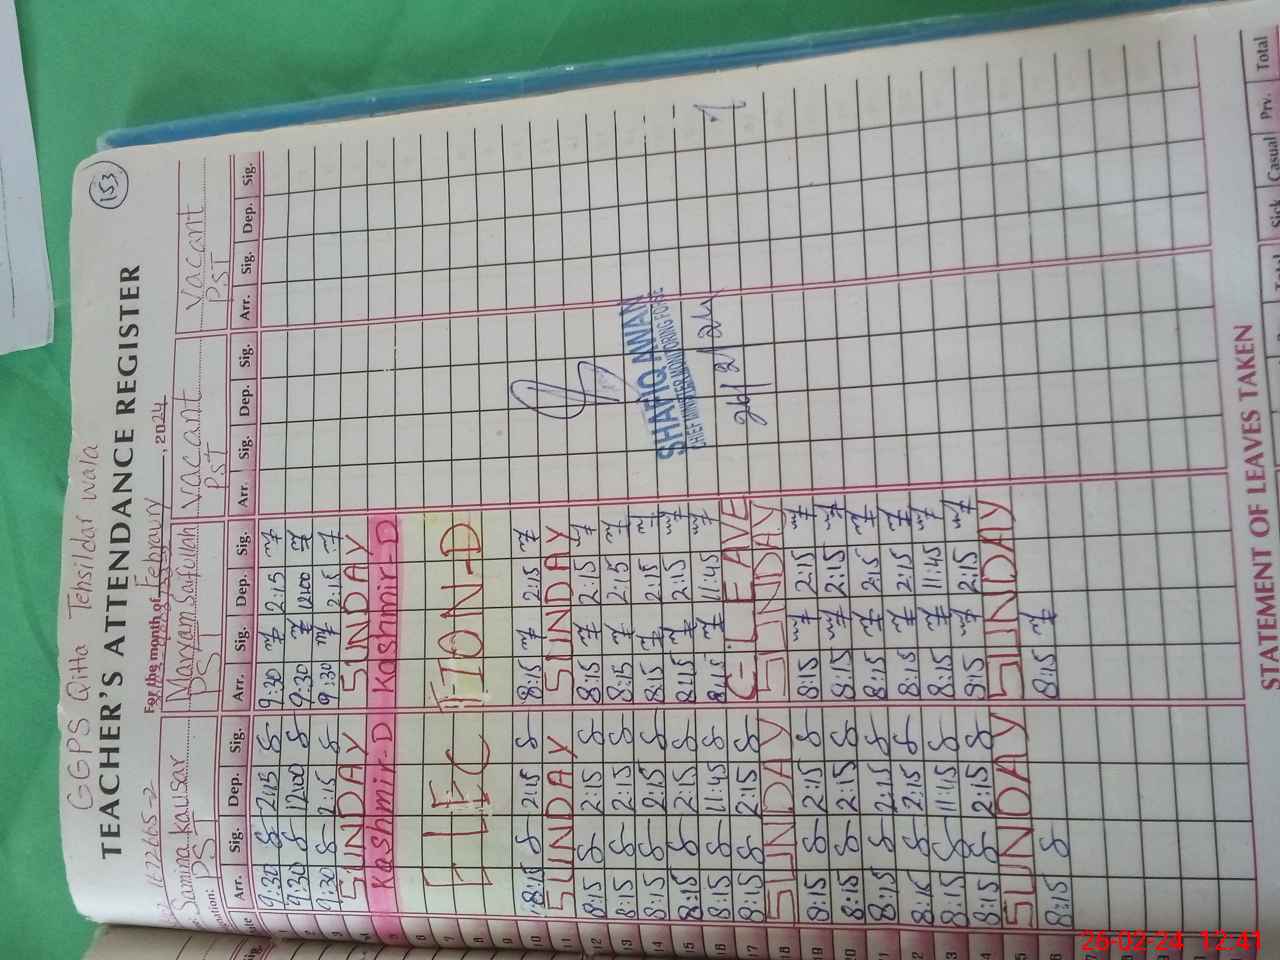 153
GGPS Qitta Tehsildar wala
TEACHER'S ATTENDANCE REGISTER
For the month of Febraury, 2024
Samina Kausar Maryam Saifullah vacant vacant
PST PST PST PST
Arr. Sig. Dep. Sig. Arr. Sig. Dep. Sig. Arr. Sig. Dep. Sig. Arr. Sig. Dep. Sig.
9:30 2:15 9:30 2:15
9:30 12:00 9:30 12:00
9:30 2:15 9:30 2:15
SUNDAY SUNDAY
5 Kashmir-D Kashmir-D
6
7 ELECTION-D
8
9
10 8:15 2:15 8:15 2:15
11 SUNDAY SUNDAY
12 8:15 2:15 8:15 2:15
13 8:15 2:15 8:15 2:15
14 8:15 2:15 8:15 2:15
15 8:15 2:15 8:15 2:15
16 8:15 11:45 8:15 11:45
17 8:15 2:15 C-LEAVE
18 SUNDAY SUNDAY
19 8:15 2:15 8:15 2:15
20 8:15 2:15 8:15 2:15
21 8:15 2:15 8:15 2:15
22 8:15 2:15 8:15 2:15
8:15 11:45 8:15 11:45
8:15 2:15 8:15 2:15
SUNDAY SUNDAY
8:15 8:15
SHAFIQ AWAN
CHIEF MINISTER MONITORING FORCE
26/2/24
STATEMENT OF LEAVES TAKEN
Total Sick Casual Prv. Total
26-02-24 12:41